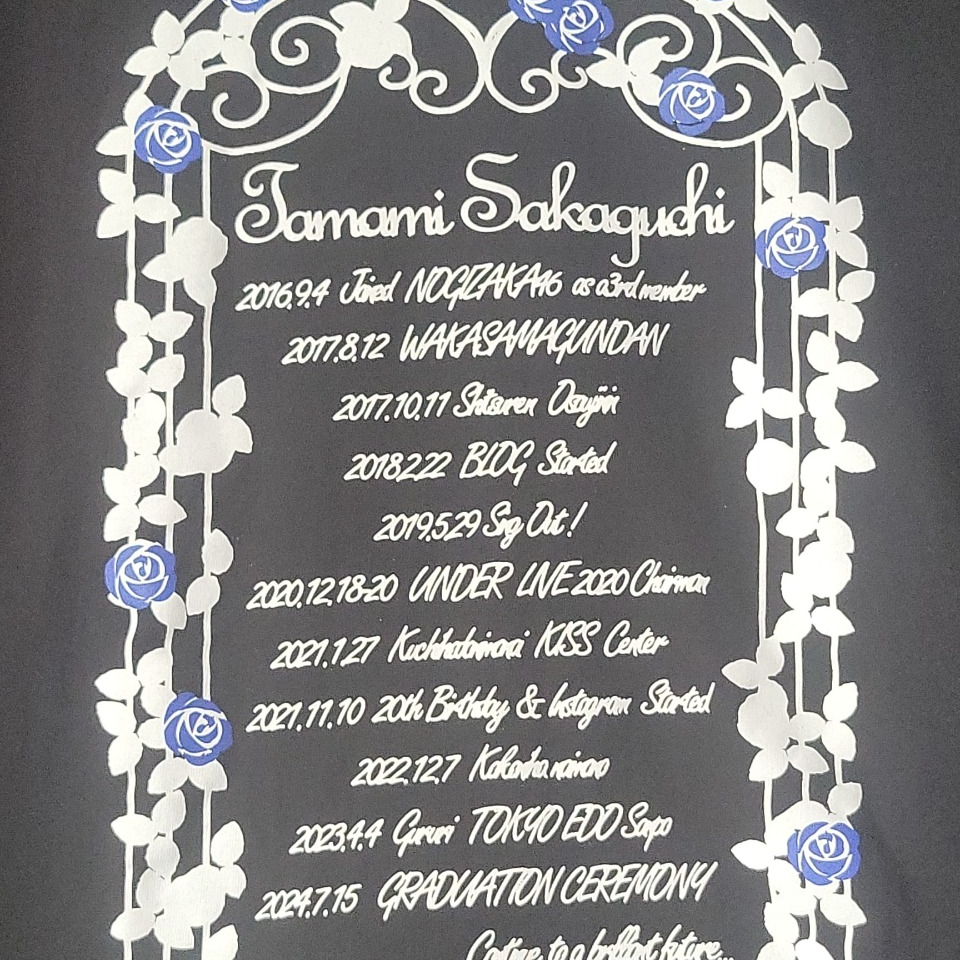 Tamami Sakaguchi
2016.9.4 Joined NOGIZAKA46 as a 3rd member
2017.8.12 WAKASAMAGUNDAN
2017.10.11 Shitsuren Osujiisan
2018.2.22 BLOG Started
2019.5.29 Sing Out!
2020.12.18-20 UNDER LIVE 2020 Chairman
2021.1.27 Kuchihabitanai KISS Center
2021.11.10 20th Birthday & Instagram Started
2022.12.7
2023.4.4 Gururi TOKYO EDO Sanpo
2024.7.15 GRADUATION CEREMONY
Continue to a brilliant future...